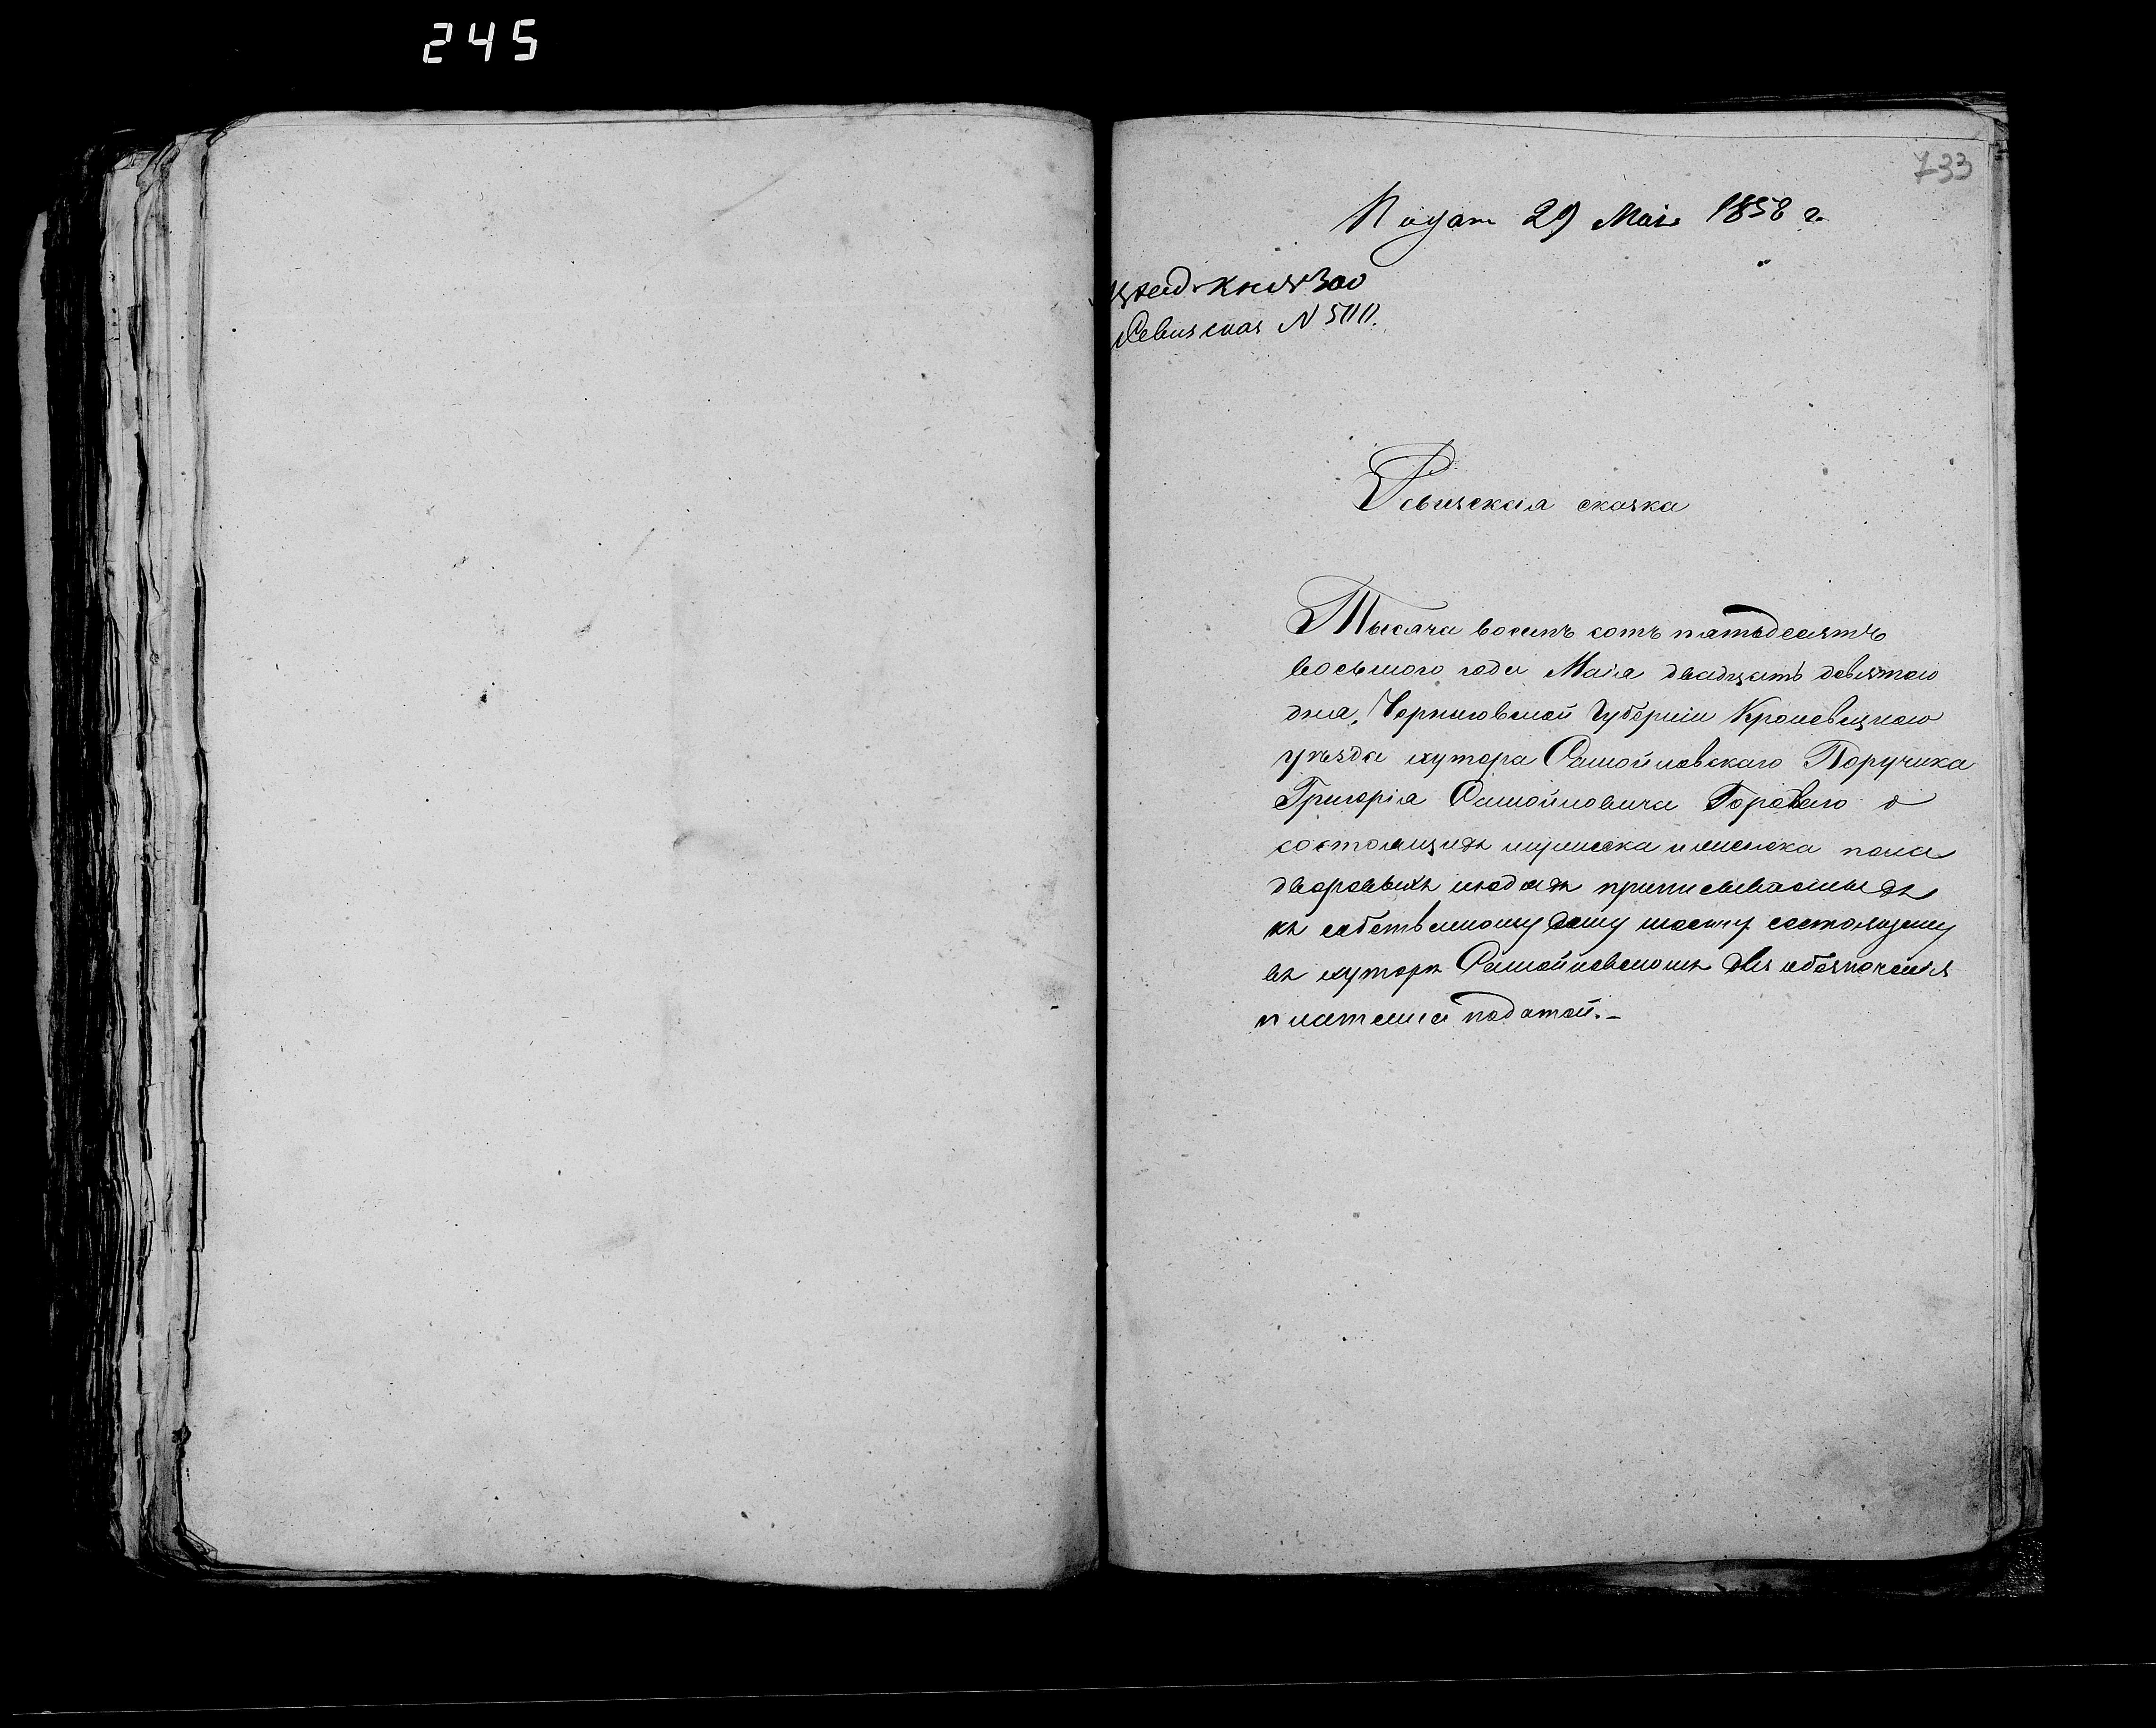 245
733
Подан 29 Маія 1858 г.
300
Ревизская N 500.
Ревизская сказка
Тысяча восемь сотъ пятьдесятъ
восьмого года Маія двадцать девятого
дня, Черниговской Губерніи Кролевецкого
уѣзда хутора Самойловскаго Поручика
Григорія Самойловича Горового о
состоящихъ мужеска и женска пола
дворовыхъ людяхъ приписываемыхъ
къ собственному дому моему состоящему
въ хуторѣ Самойловскомъ для обезпеченія
платежа податей.-